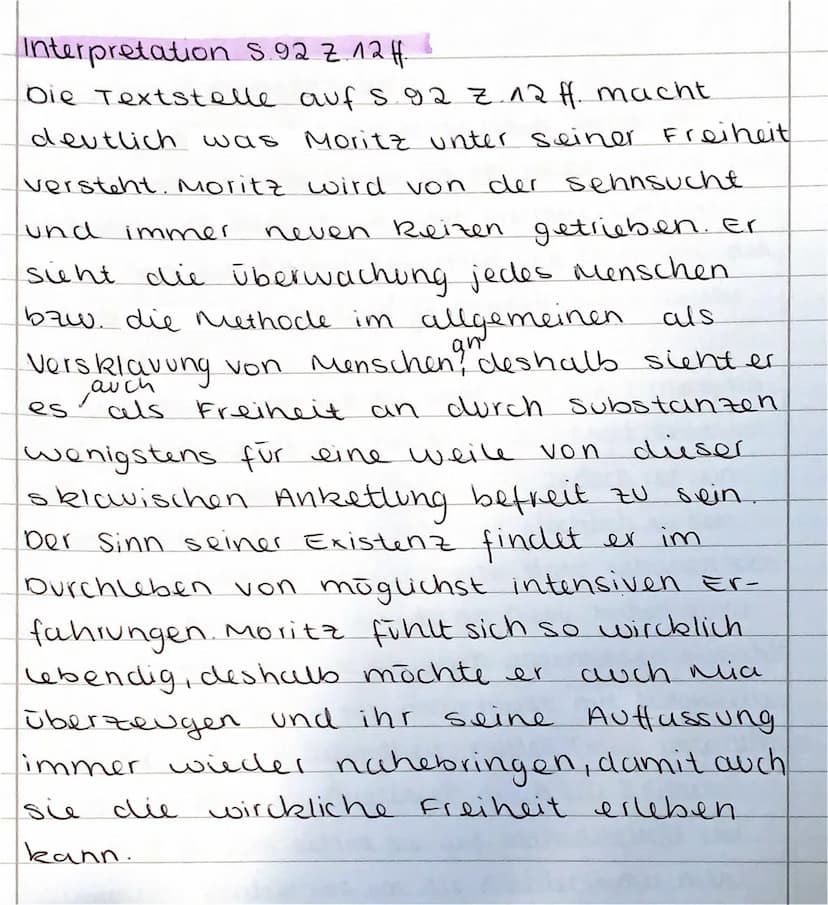 Interpretation S. 92 Z. 12 ff.
Die Textstelle auf S. 92 Z. 12 ff. macht
deutlich was Moritz unter seiner Freiheit
versteht. Moritz wird von der Sehnsucht
und immer neuen Reizen getrieben. Er
sieht die Überwachung jedes Menschen
bzw. die Methode im allgemeinen als
Versklavung von Menschen an, deshalb sieht er
es auch als Freiheit an durch Substanzen
wenigstens für eine Weile von dieser
sklavischen Ankettung befreit zu sein.
Der Sinn seiner Existenz findet er im
Durchleben von möglichst intensiven Er-
fahrungen. Moritz fühlt sich so wircklich
lebendig, deshalb möchte er auch Mia
überzeugen und ihr seine Auffassung
immer wieder nahebringen, damit auch
sie die wirckliche Freiheit erleben
kann.